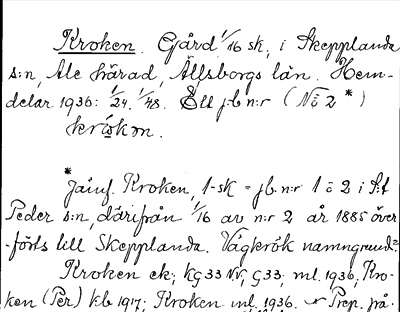 Kroken. Gård 1/16 sk, i Skepplanda
s:n, Ale härad, Älfsborgs län. Hem-
delar 1936: 1/24. 1/48. Ett j:b n:r (No 2 *)
krokən.
*
Jämf. Kroken, 1-sk = jb. n:r 1 o 2 i S:t
Peder s:n, därifrån 1/16 av n:r 2 år 1885 över-
-förts till Skepplanda. Vägkrök namngrund?
Kroken ek; KG33 NV; G33; ml. 1936; Kro-
ken (Per) kb 1917; Kroken ml. 1936. Prep. på.